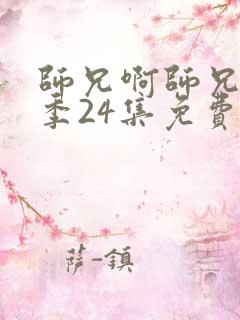 師兄啊師兄
季24集免費
薩-鎮